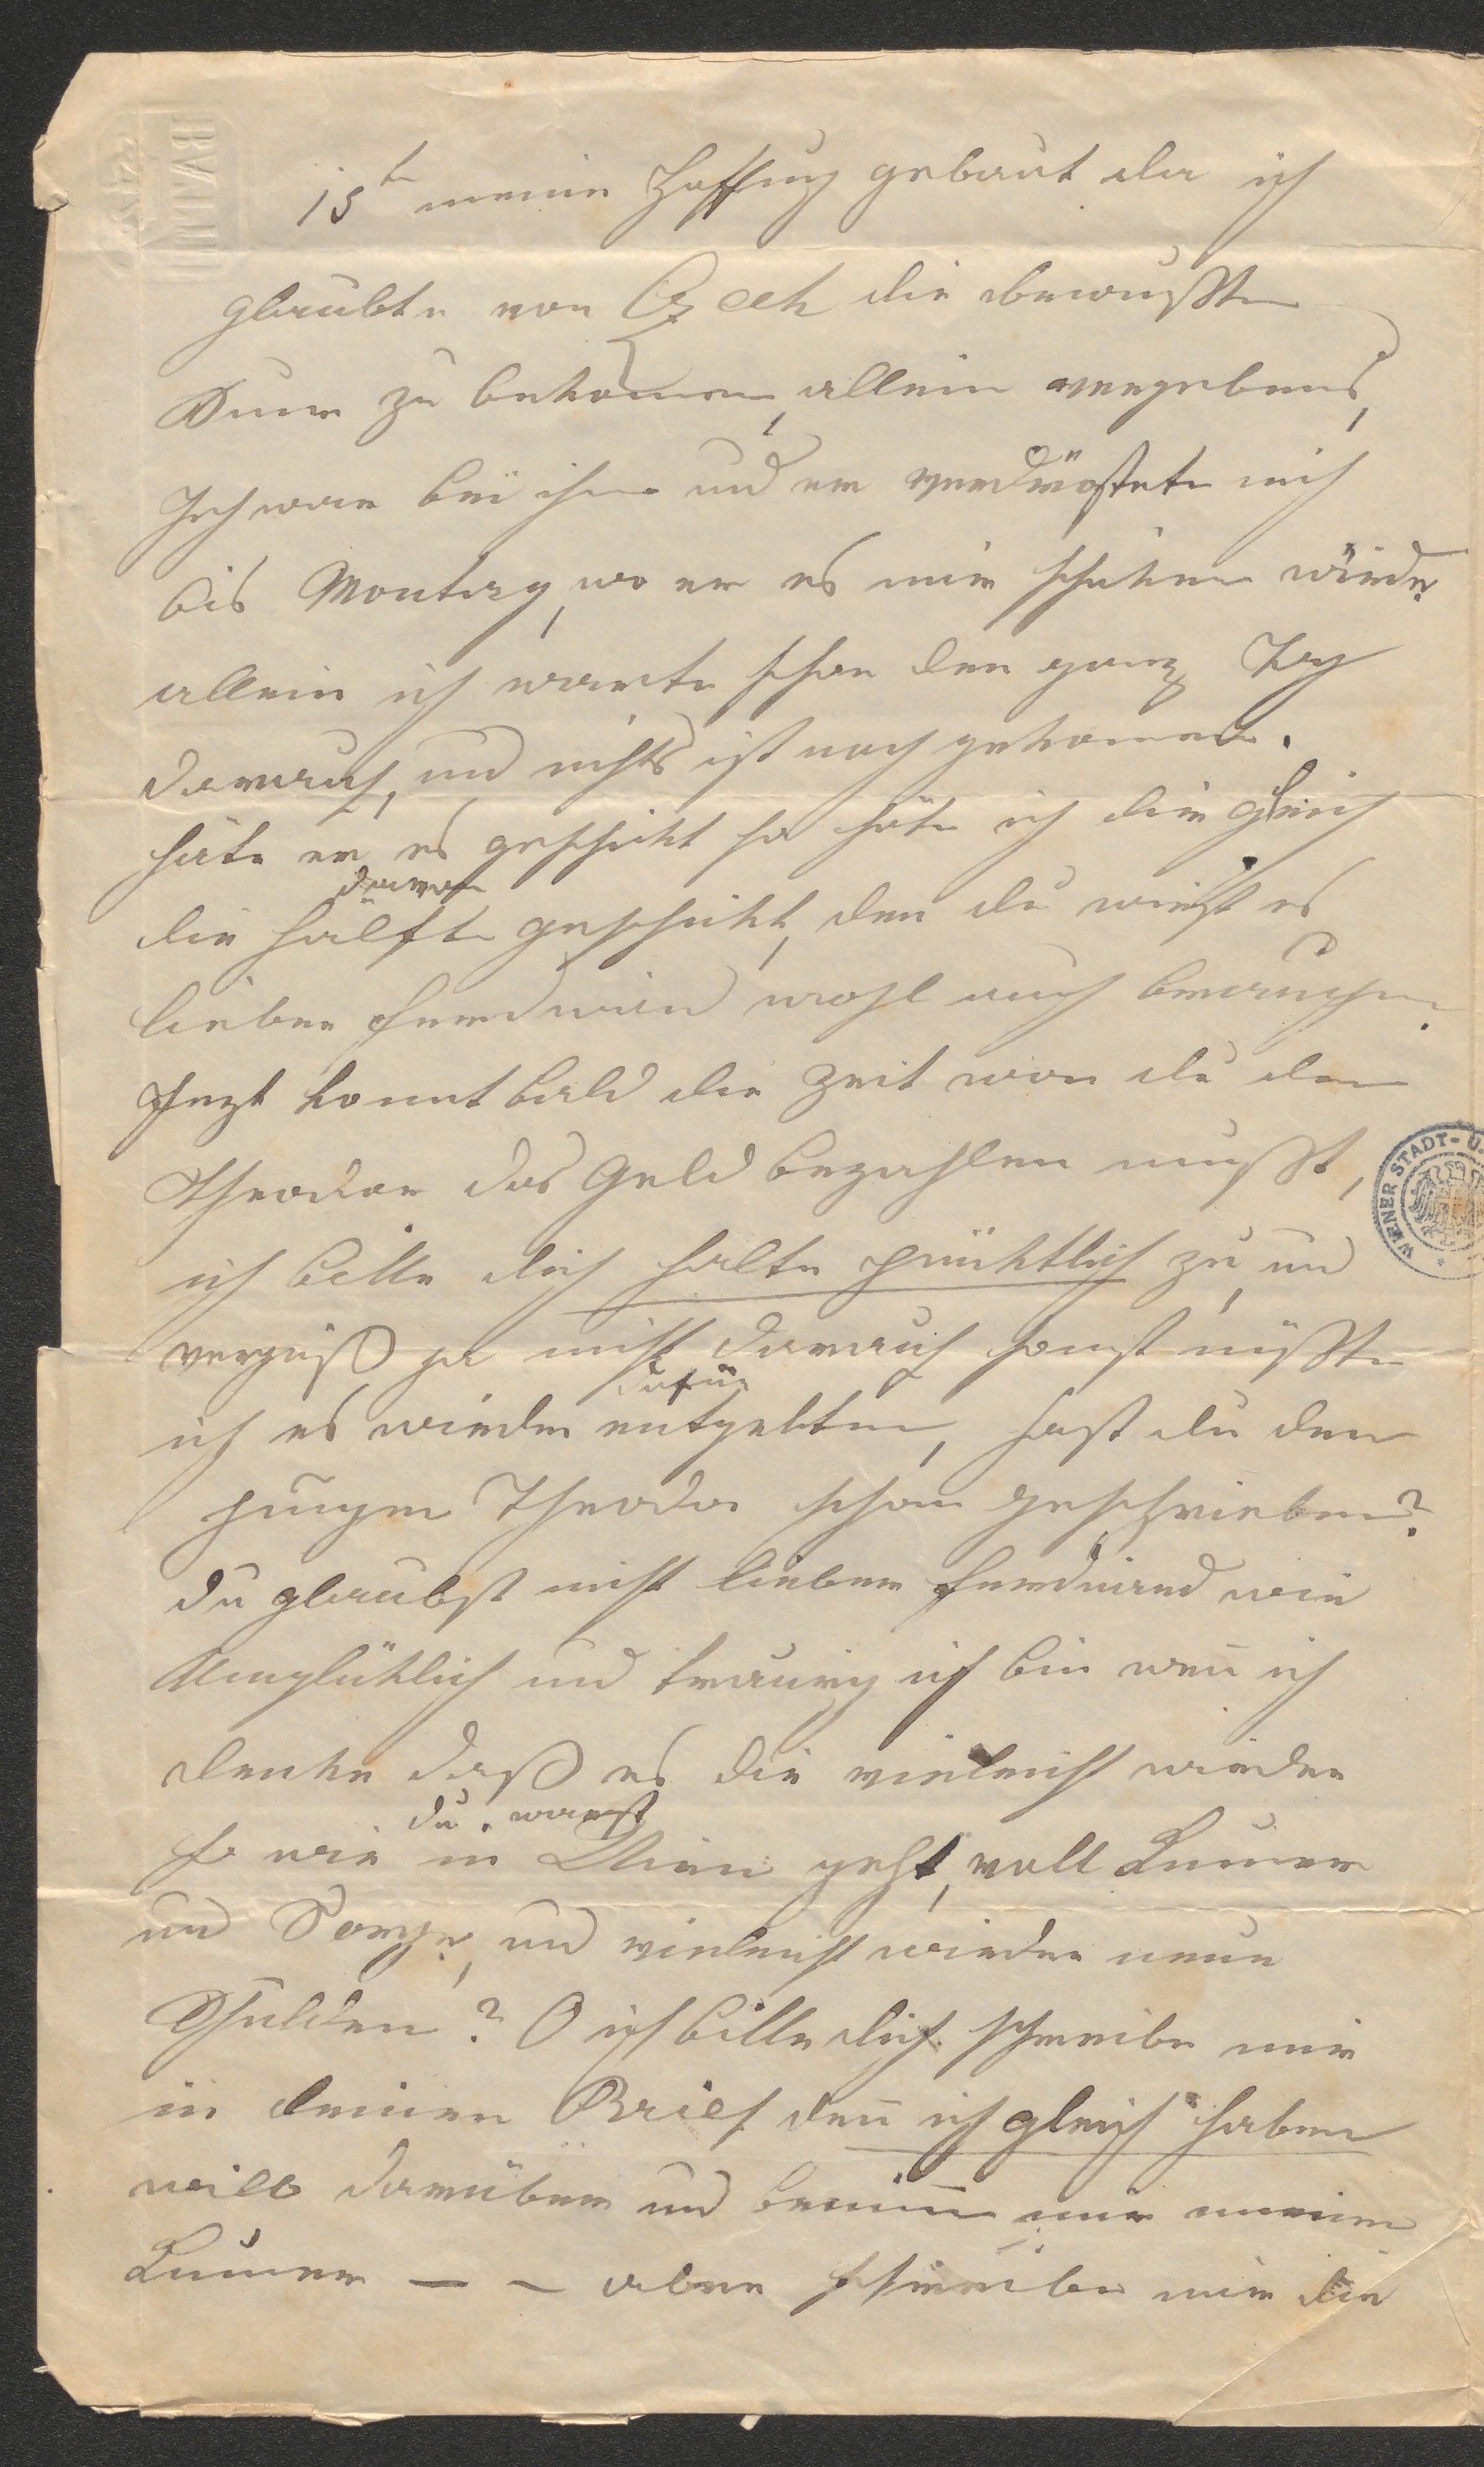 15t meine Hoffnung gebaut da ich
glaubte von Czech die bewußte
Sume zu bekomen, allein vergebens,
Ich war bei ihm und er verdröstete mich
bis Montag, wo er es mir schiken würde,
allein ich warte schon den ganz Tag
darauf, und nichts ist noch gekomen.
häte er es geschikt so häte ich dir gleich
davon
die Hälfte geschikt, den du wirst es
lieber Ferdinand wohl auch brauchen.
Jezt kommt bald die Zeit wan du dem
Theodor das Geld bezahlen mußt,
ich bitte dich halte pünktlich zu, und
vergiß ja nicht darauf sonst müßte
dafür
ich es wieder entgelten, hast du den
jungen Theodor schon geschrieben?
du glaubst nicht lieber Ferdinand wie
Unglüklich und traurig ich bin wen̄ ich
denke daß es dir vieleicht wieder
du warst
so wie in Wien geht, voll Kumer
und Sorge, und vieleicht wieder neue
Schulden? O ich bitte dich schreibe mir
in deinen Brief den̄ ich gleich haben
will darüber und benim̄ mir meinen
Kumer — — aber schreibe mir die
WIENER STADT-U.